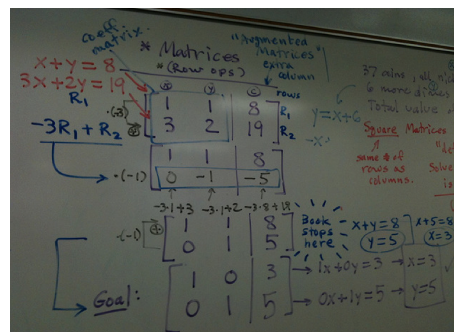 coeff. matrix.
* Matrices
(Row ops)
"Augmented
Matrices"
extra
column
x+y=8
3x+2y=19
R₁
-3R₁+R₂
x y c rows
·(-3)
1 1 | 8 R₁
3 2 | 19 R₂
·(-1)
1 1 | 8
0 -1 | -5
-3·1+3 -3·1+2 -3·8+19
·(-1)
1 1 | 8
0 1 | 5
Book
stops
here
x+y=8
y=5
x+5=8
x=3
Goal:
1 0 | 3 → 1x+0y=3 → x=3
0 1 | 5 → 0x+1y=5 → y=5
37 coins, all
6 more
Total value
y=x+6
-x
Square Matrices
same # of
rows as
columns.
Solve